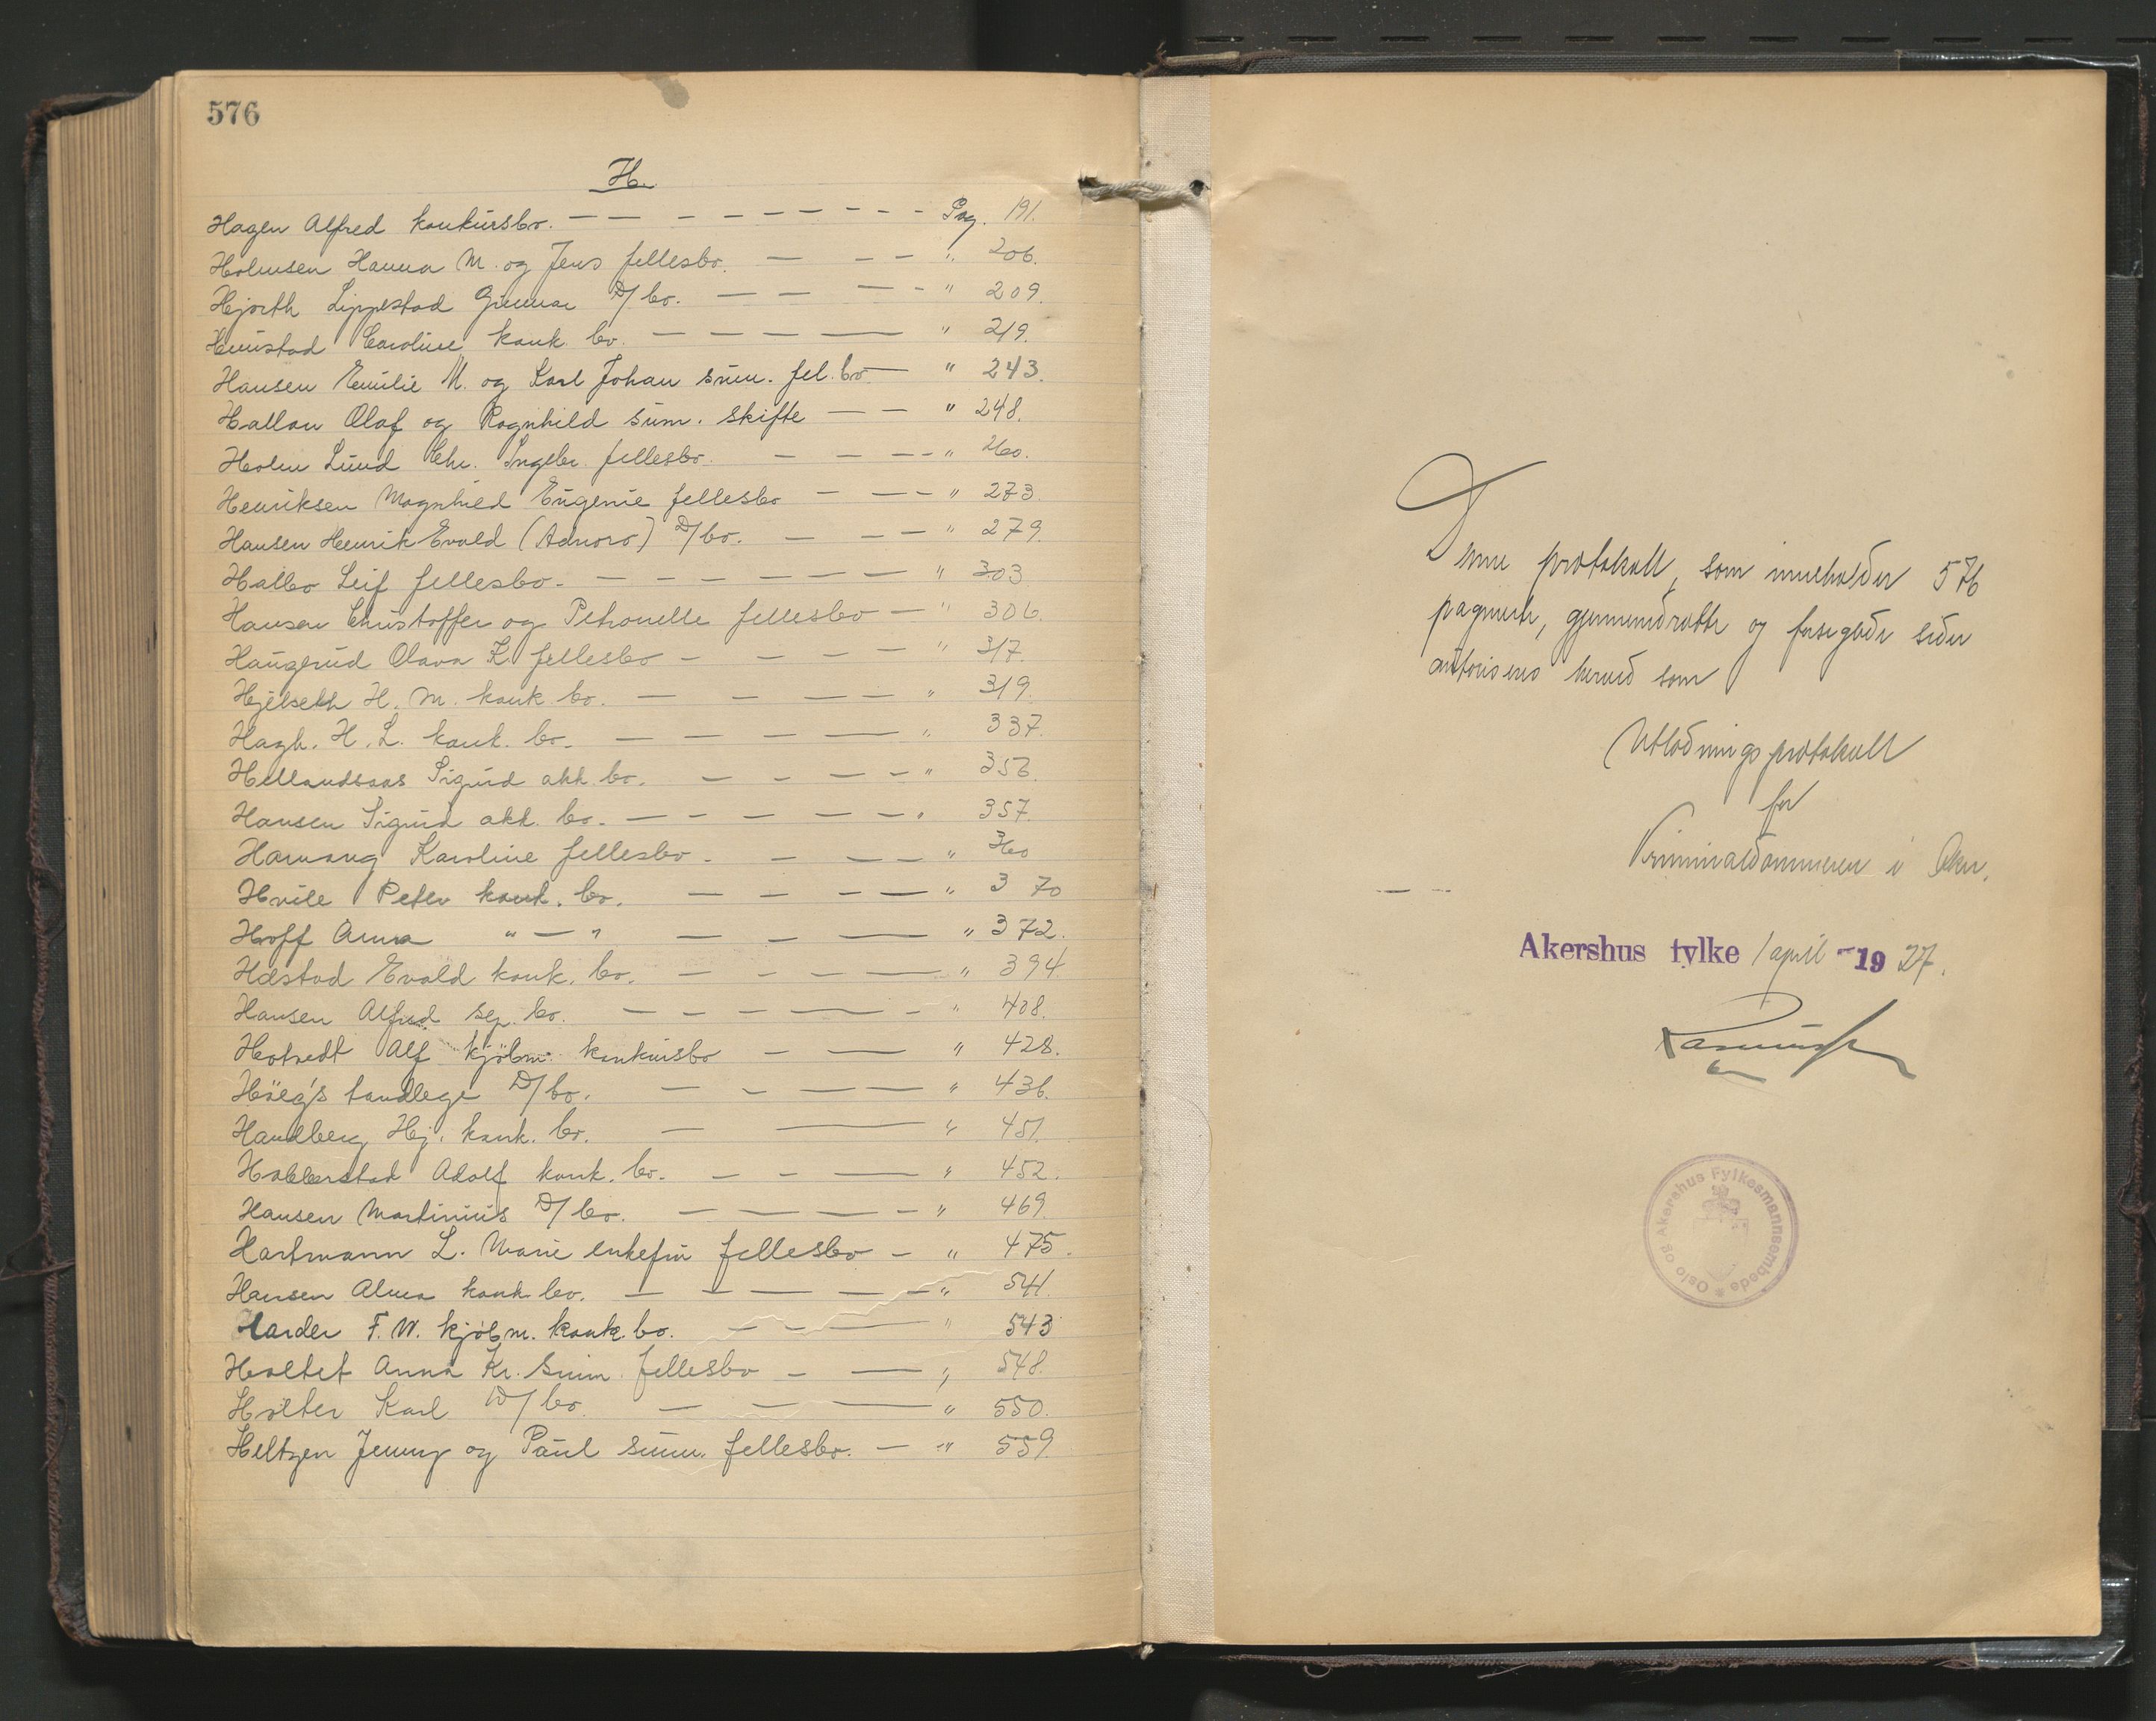 576
H.
Hagen Alfred konkursbo. — — — — — — — — — Pag. 191.
Holmsen Hanna M. og Jens fellesbo. — — — " 206.
Hjorth Lippestad Gunnar D/bo. — — — — " 209.
Huustad Caroline konk. bo. — — — — " 219.
Hansen Emilie M. og Karl Johan sum. fel. bo — " 243.
Hallan Olaf og Ragnhild sum. skifte — — " 248.
Holm Lund Chr. Ingebr. fellesbo. — — — " 260.
Henriksen Magnhild Eugenie fellesbo — — — " 273.
Hansen Henrik Evald (Adnoro) D/bo. — — — " 279.
Halbo Leif fellesbo. — — — — — — — " 303
Hansen Christoffer og Petronelle fellesbo — " 306.
Haugerud Olava K. fellesbo — — — — — " 317.
Hjelseth H. M. konk. bo. — — — — — " 319.
Hagh. H. L. konk. bo. — — — — — " 337.
Hellandsaas Sigurd akk. bo. — — — — — " 356.
Hansen Sigurd akk. bo. — — — — — — " 357.
Hamang Karoline fellesbo. — — — " 360
Hvile Peter konk. bo. — — — — " 370
Hoff Anna " — " — — — — " 372.
Hæstad Evald konk. bo. — — — — " 394
Hansen Alfred sep. bo. — — — — — — " 408.
Hotvedt Alf kjøbm. konkursbo — — " 428.
Høeg's tandlege D/bo. — — — — " 436.
Handberg Hj. konk. bo. — — " 451.
Habberstad Adolf konk. bo. — — — " 452.
Hansen Martinius D/bo. — — — — — " 469.
Hartmann L. Marie enkefru fellesbo — " 475.
Hansen Alma konk. bo. — — — — — " 541.
Harder F. W. kjøbm. konk. bo. — — — " 543
Holtet Anna Kr. sum. fellesbo — — " 548.
Holter Karl D/bo. — — — " 550.
Heltzen Jenny og Paul sum. fellesbo. — " 559.
Denne protokoll, som inneholder 576
paginerte, gjennemdratte og forseglede sider
autoriseres herved som
Utlodningsprotokoll
for
Kriminaldommeren i Aker.
Akershus fylke 1 april 1927.
Oslo og Akershus Fylkesmannsembede